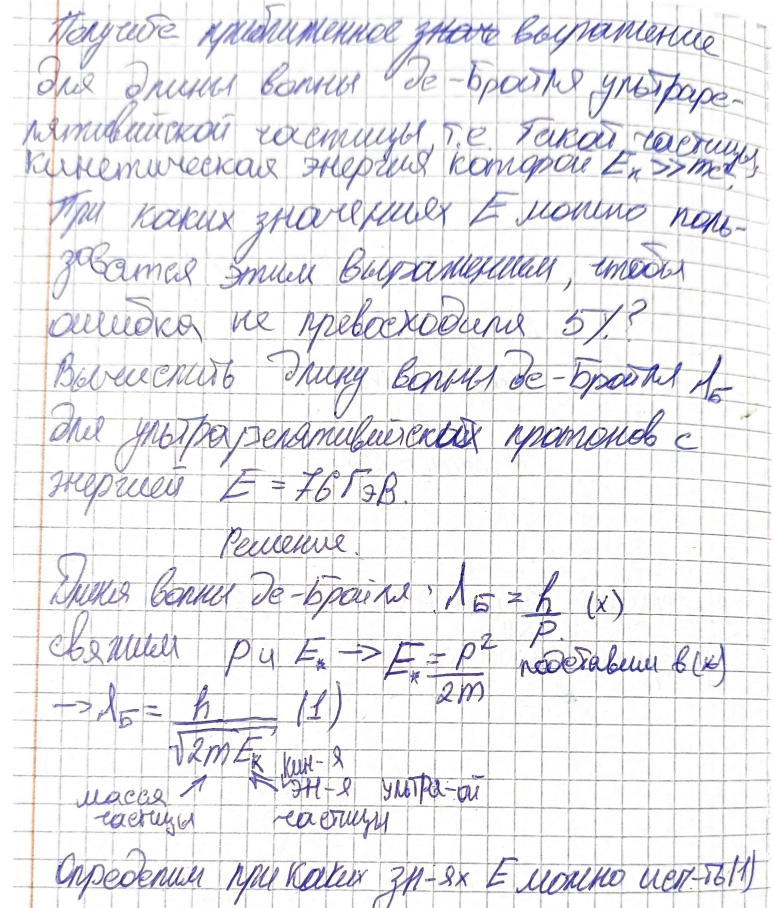 Получите приближенное знач выражение
для длины волны де-Бройля ультраре-
лятивийской частицы, т.е. такой частицы,
кинетическая энергия которой Eк >> mc².
При каких значениях E можно поль-
зоватся этим выражением, чтобы
ошибка не превосходила 5%?
Вычислить длину волны де-Бройля λ_Б
для ультрарелятивийских протонов с
энергией E = 76 ГэВ.
Решение.
Длина волны де-Бройля: λ_Б = h/p (x)
свяжим p и Eк → Eк = p²/2m подставим в (x)
→ λ_Б = h/√(2mEк) (1)
масса частицы
кин-я эн-я ультра-ой частицы
Определим при каких зн-ях E можно исп-ть (1)